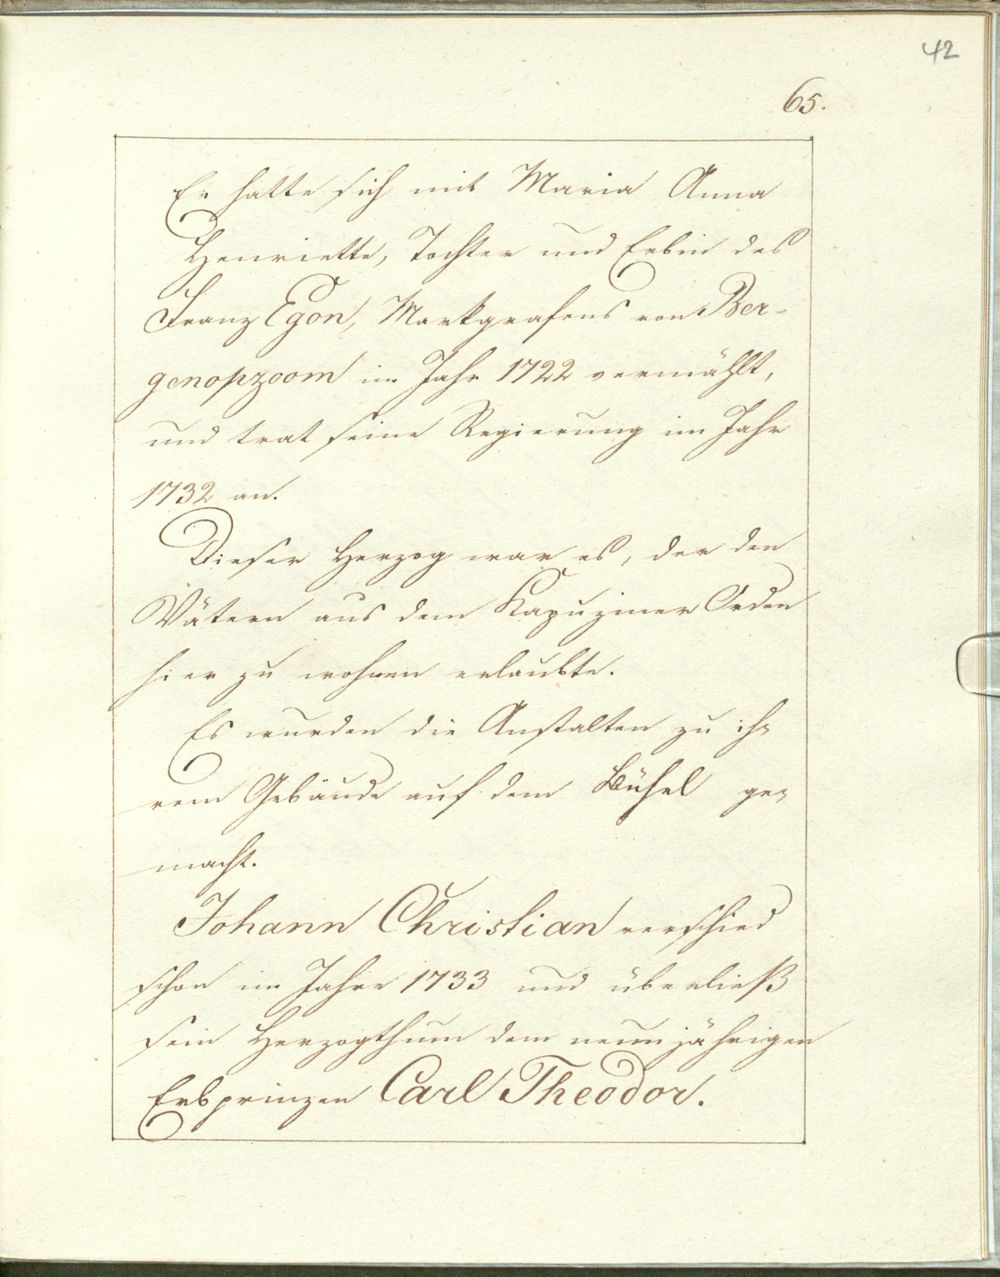 42
65.
Er hatte sich mit Maria Anna
Henriette, Tochter und Erbin des
Franz Egon, Markgrafens von Ber-
genopzoom im Jahr 1722 vermählt,
und trat seine Regierung im Jahr
1732 an.
Dieser Herzog war es, der den
Vätern aus dem Kapuziner Orden
hier zu wohnen erlaubte.
Es wurden die Anstalten zu ih-
rem Gebäude auf dem Bühel ge-
macht.
Johann Christian verschied
schon im Jahre 1733 und überließ
sein Herzogthum dem neunjährigen
Erbprinzen Carl Theodor.